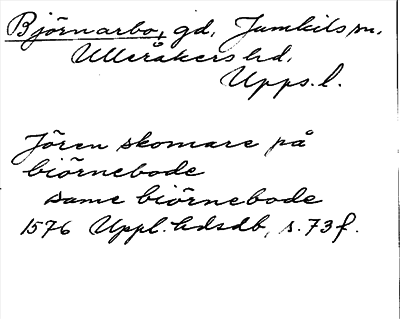 Björnarbo, gd, Jumkils sn,
Ulleråkers hd.
Upps. l.
Jören skomare på
biörnebode
same biörnebode
1576 Uppl. hdsdb, s. 73 f.